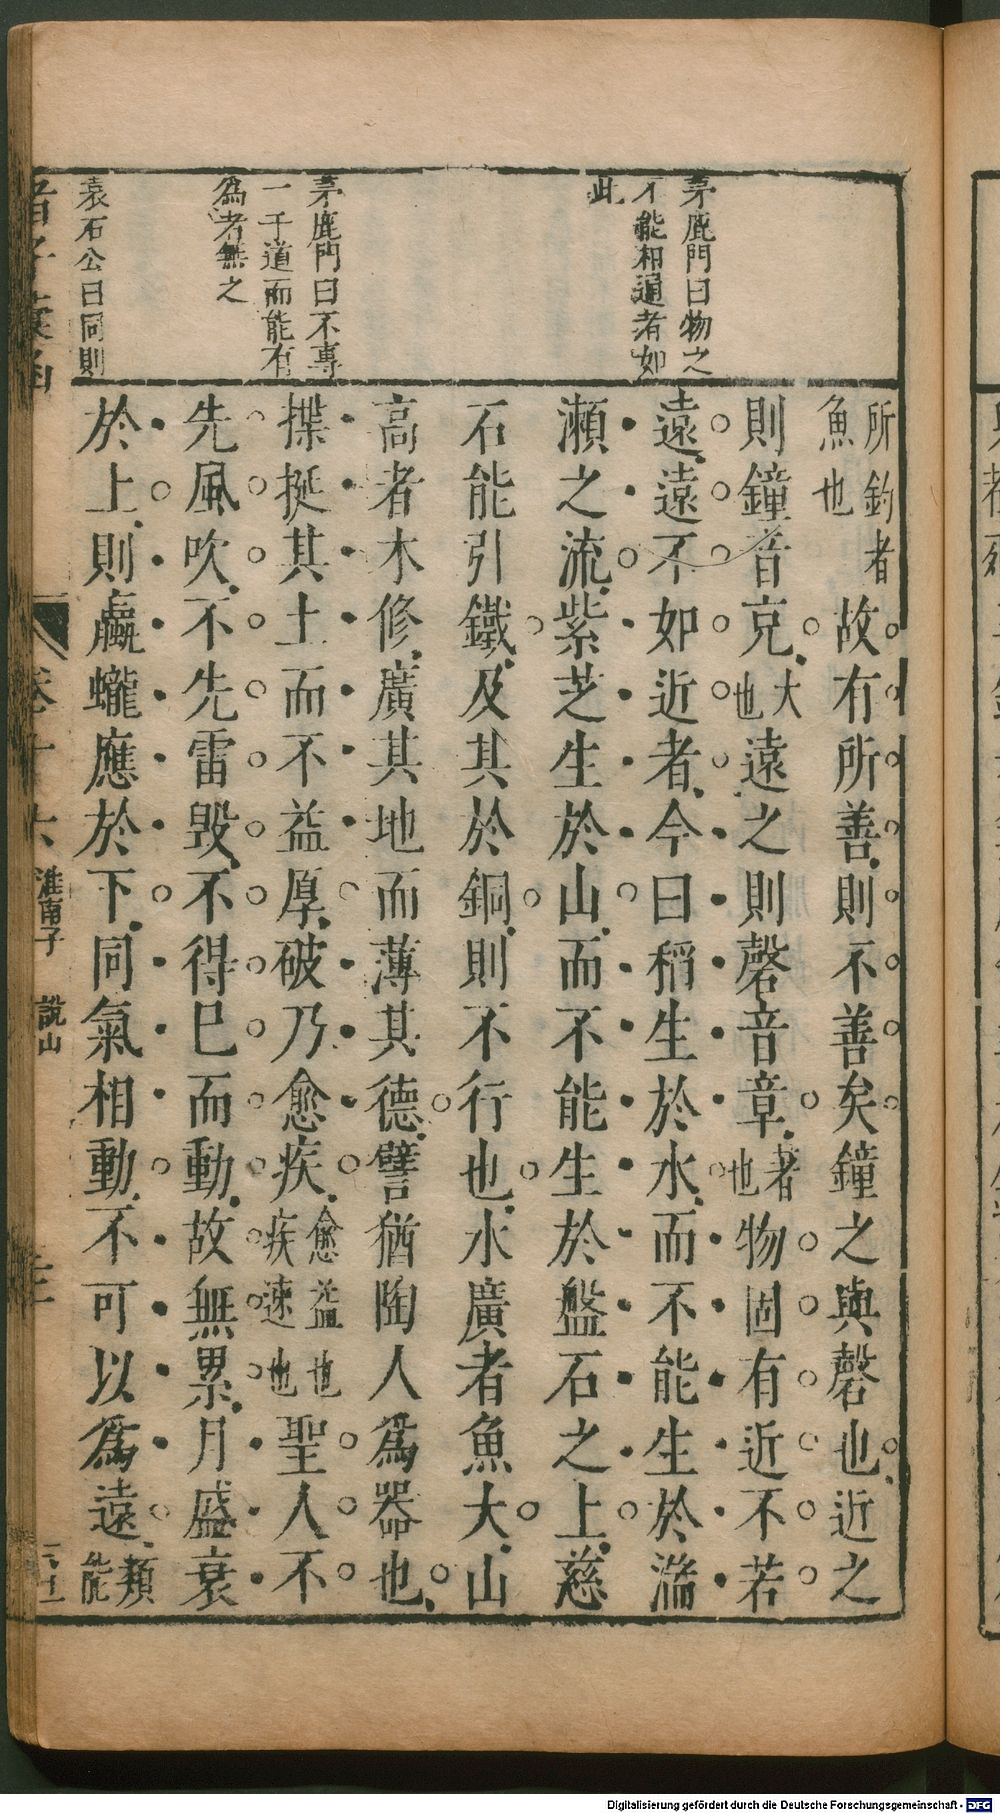 茅鹿門曰物之
不能相通者如
此
茅鹿門曰不專
一于道而能有
為者無之
袁石公曰同則
所釣者魚也故有所善則不善矣鐘之與磬也近之
則鐘音克大也遠之則磬音章著也物固有近不若
遠遠不如近者今曰稻生於水而不能生於湍
瀬之流紫芝生於山而不能生於盤石之上慈
石能引鐵及其於銅則不行也水廣者魚大山
高者木修廣其地而薄其德譬猶陶人為器也
揲挻其土而不益厚破乃愈疾愈益也疾速也聖人不
先風吹不先雷毀不得巳而動故無累月盛衰
於上則蠃蠬應於下同氣相動不可以為遠類能
卷十六
淮南子
說山
Digitalisierung gefördert durch die Deutsche Forschungsgemeinschaft - DFG